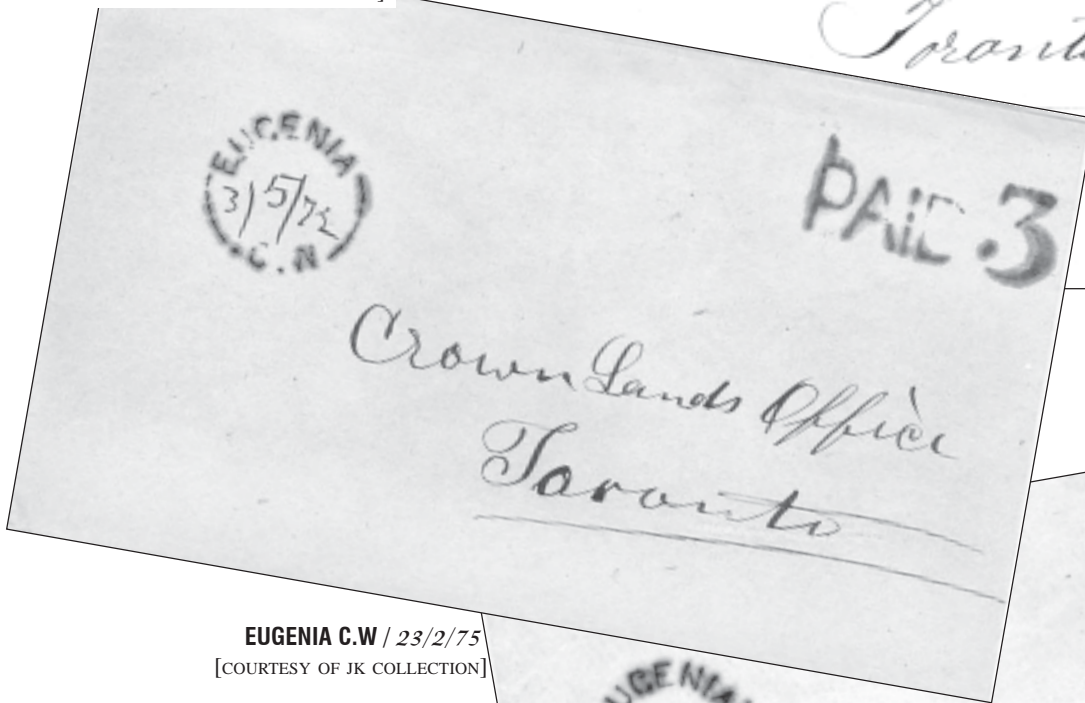 Toronto
EUGENIA
3/5/72
C.W
PAID 3
Crown Lands Office
Toronto
EUGENIA C.W / 23/2/75
[COURTESY OF JK COLLECTION]
EUGENIA